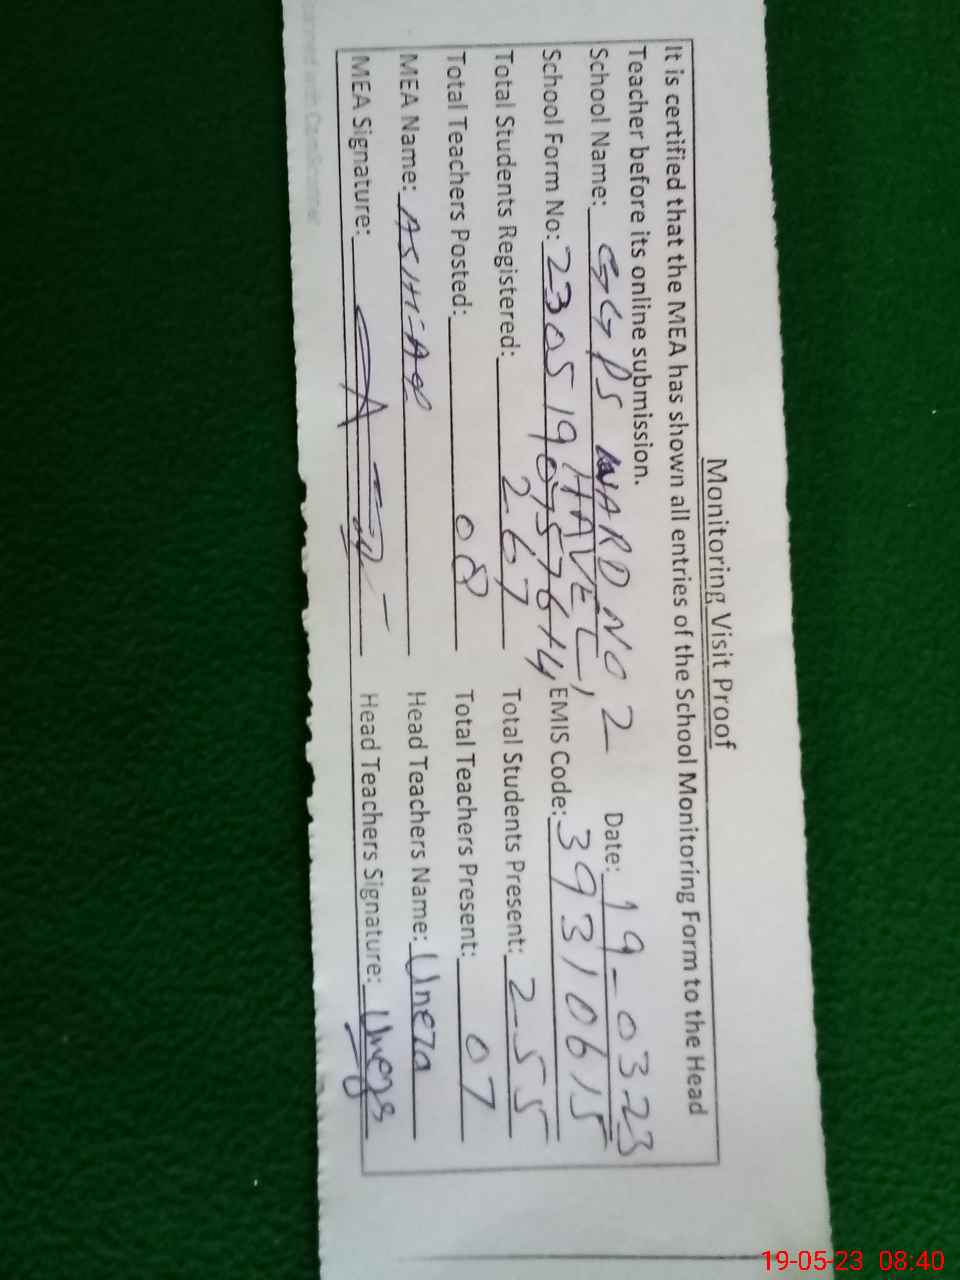 Monitoring Visit Proof
It is certified that the MEA has shown all entries of the School Monitoring Form to the Head
Teacher before its online submission.
School Name: GGPS WARD NO 2 Date: 19-03-23
HAVELI,
School Form No: 2305190757614 EMIS Code: 39310615
Total Students Registered: 267 Total Students Present: 255
Total Teachers Posted: 08 Total Teachers Present: 07
MEA Name: Head Teachers Name: Uneza
MEA Signature: Head Teachers Signature:
Scanned with CamScanner
19-05-23 08:40